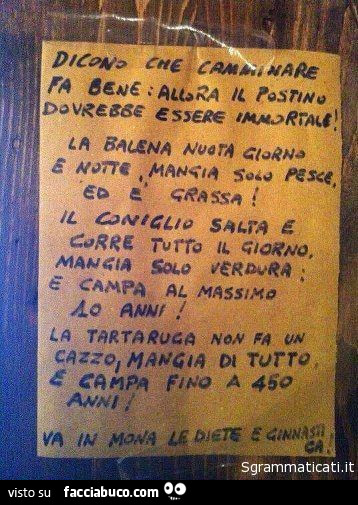 DICONO CHE CAMMINARE
FA BENE: ALLORA IL POSTINO
DOVREBBE ESSERE IMMORTALE!
LA BALENA NUOTA GIORNO
E NOTTE, MANGIA SOLO PESCE,
ED E' GRASSA!
IL CONIGLIO SALTA E
CORRE TUTTO IL GIORNO,
MANGIA SOLO VERDURA:
E CAMPA AL MASSIMO
10 ANNI!
LA TARTARUGA NON FA UN
CAZZO, MANGIA DI TUTTO,
E CAMPA FINO A 450
ANNI!
VA IN MONA LE DIETE E GINNASTI
CA!
Sgrammaticati.it
visto su facciabuco.com